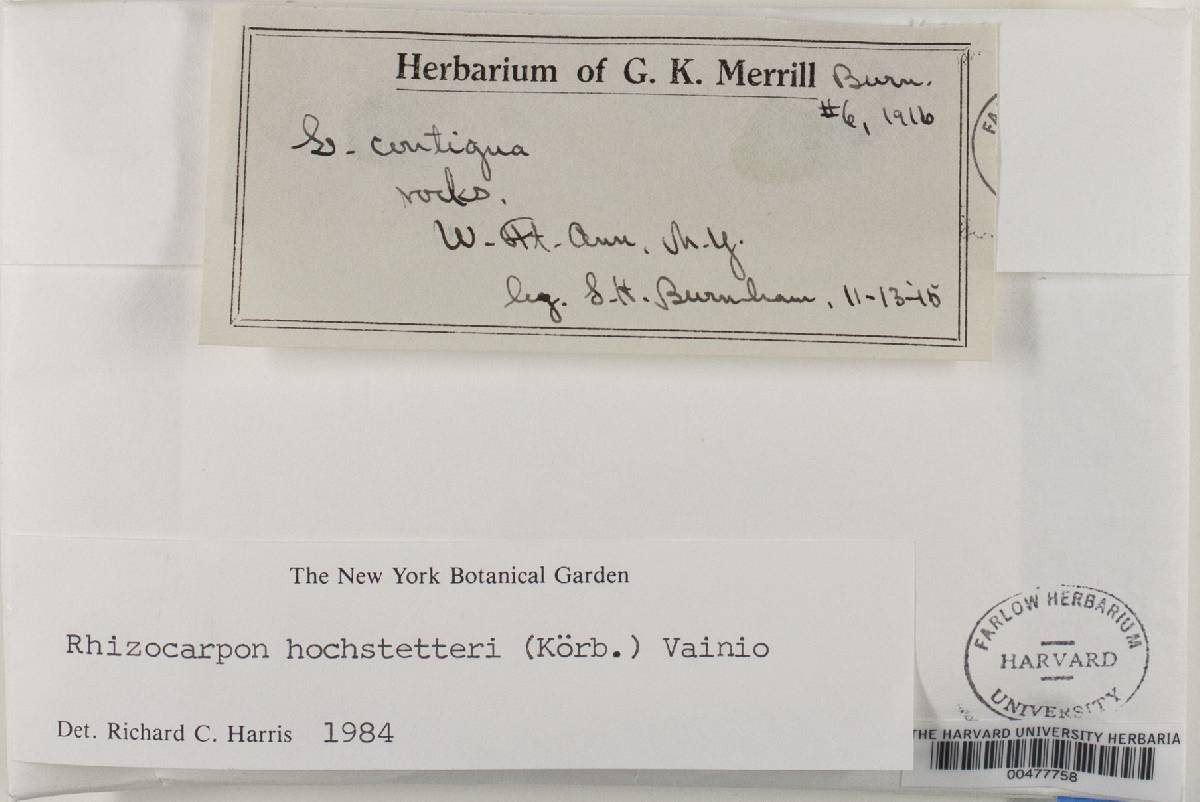 Herbarium of G. K. Merrill Burn.
#6, 1916
L. contigua
rocks.
W. Ft. Ann, N.Y.
leg. S.H. Burnham, 11-13-'15
FA
The New York Botanical Garden
Rhizocarpon hochstetteri (Körb.) Vainio
Det. Richard C. Harris 1984
FARLOW HERBARIUM
HARVARD
UNIVERSITY
THE HARVARD UNIVERSITY HERBARIA
00477758